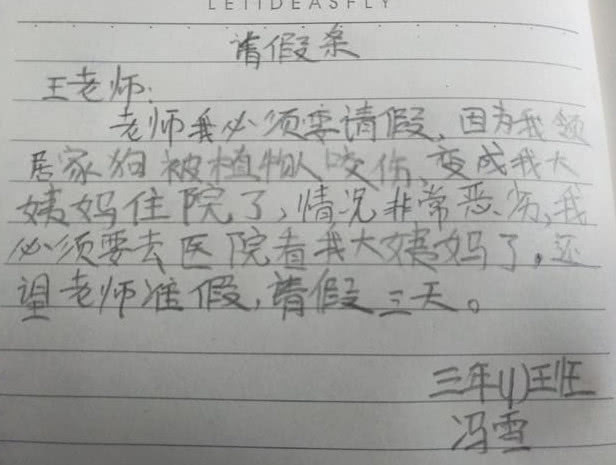 LETIDEASFLY
请假条
王老师:
老师我必须要请假,因为我领
居家狗被植物人咬伤,变成我大
姨妈住院了,情况非常恶劣,我
必须要去医院看我大姨妈了,还
望老师准假,请假三天。
三年(1)班
冯雪